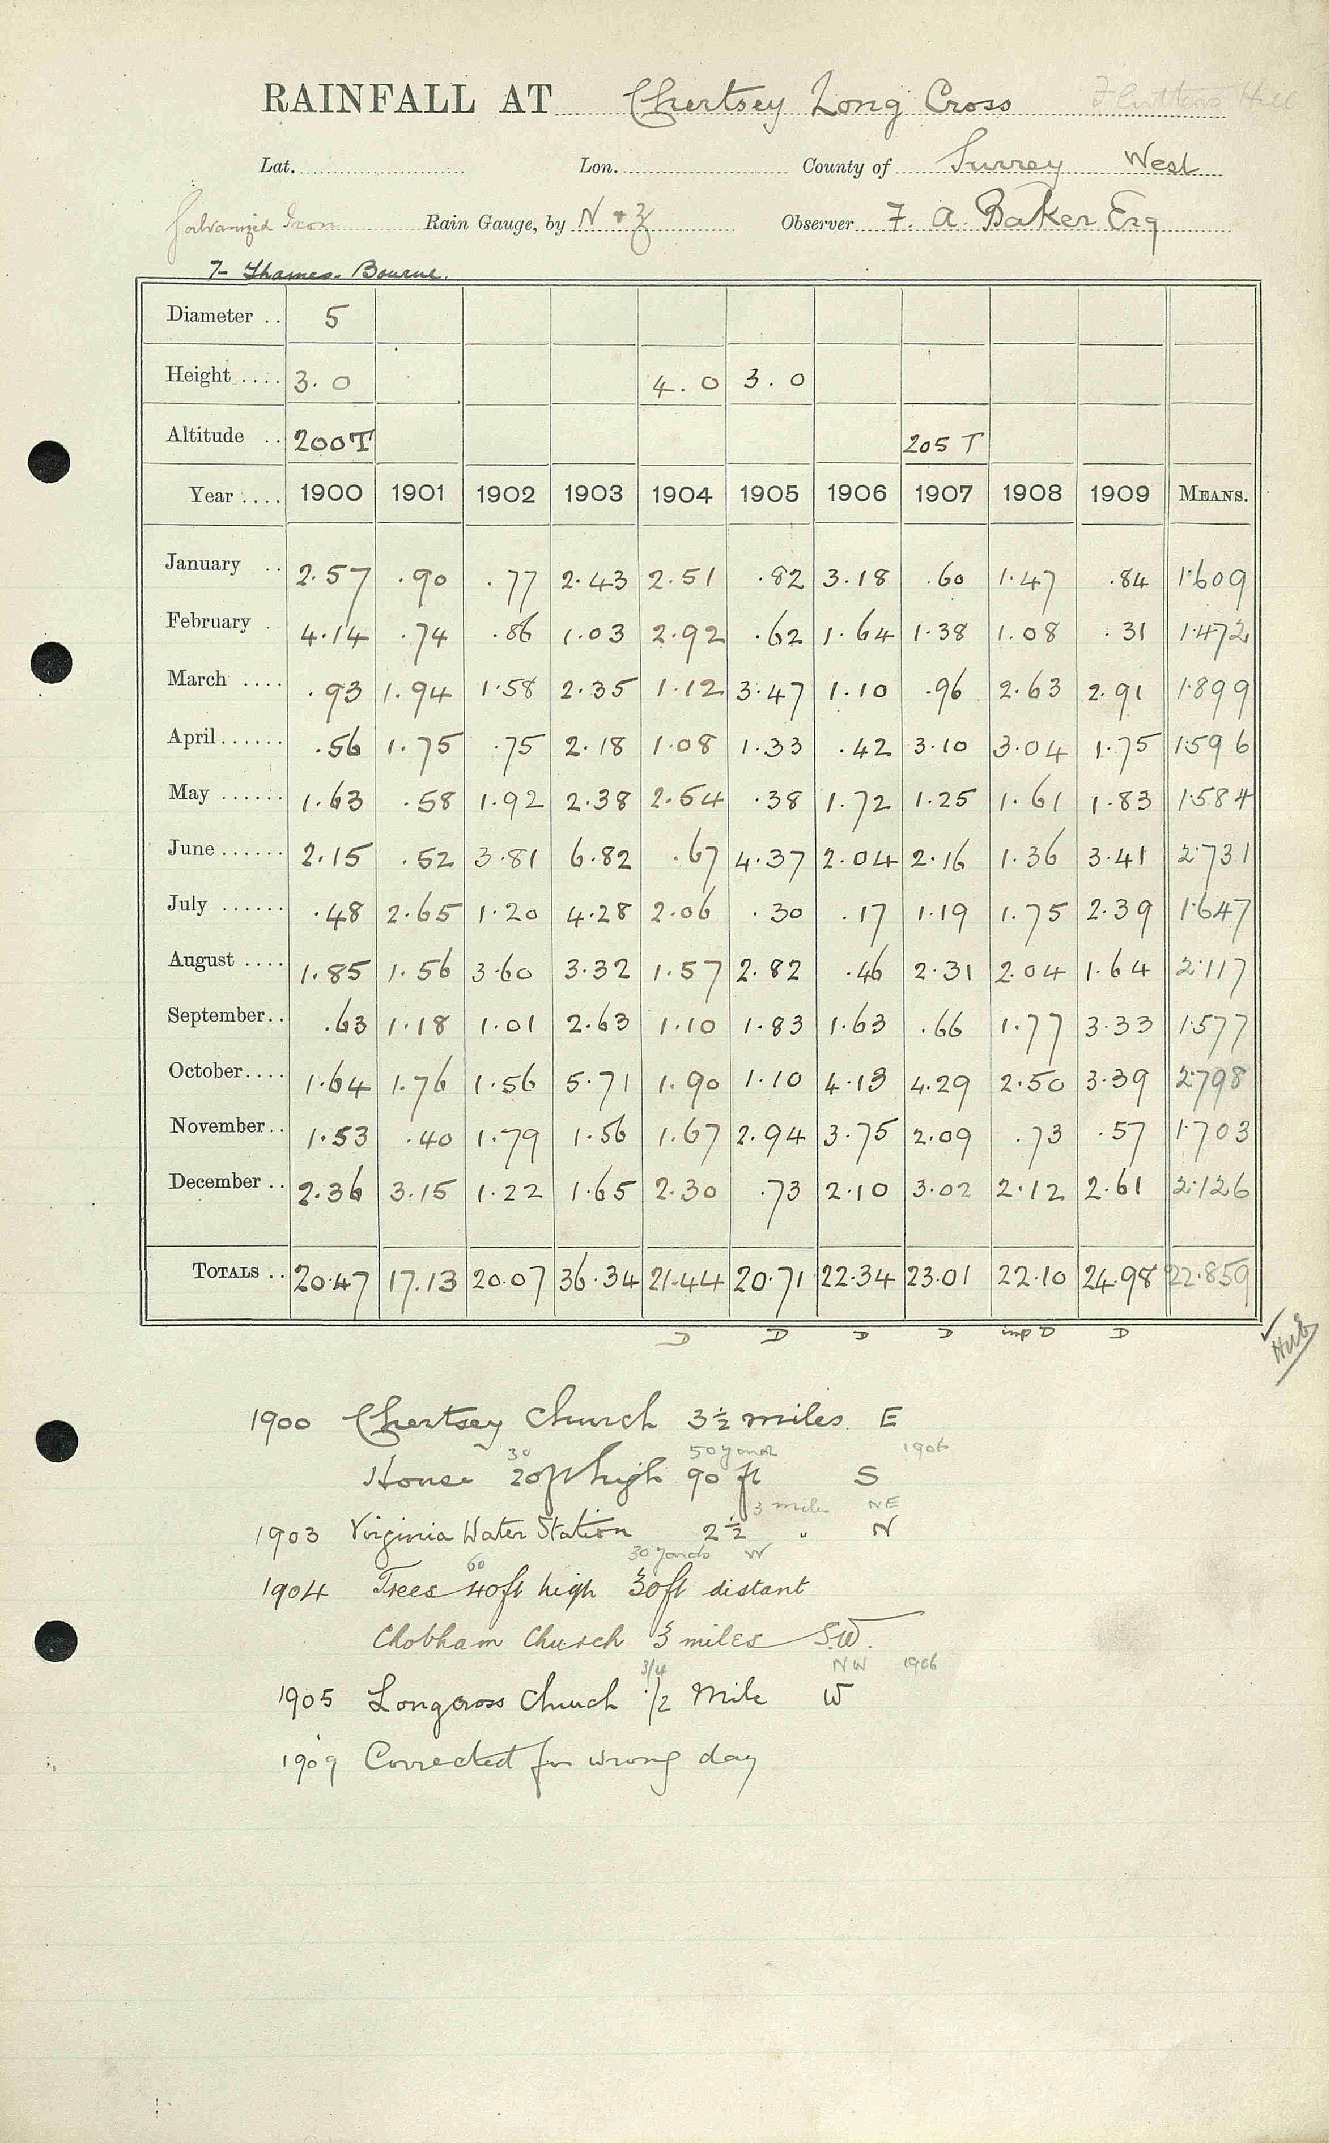 RAINFALL AT Chertsey Long Cross
Lat. Lon. County of Surrey West
Galvanized Iron Rain Gauge, by N & Z Observer F. A. Baker Esq
7- Thames. Bourne.
Diameter .. 5
Height .... 3.0 4.0 3.0
Altitude .. 200T 205 T
Year .... 1900 1901 1902 1903 1904 1905 1906 1907 1908 1909 MEANS.
January .. 2.57 .90 .77 2.43 2.51 .82 3.18 .60 1.47 .84 1.609
February . 4.14 .74 .86 1.03 2.92 .62 1.64 1.38 1.08 .31 1.472
March .... .93 1.94 1.58 2.35 1.12 3.47 1.10 .96 2.63 2.91 1.899
April...... .56 1.75 .75 2.18 1.08 1.33 .42 3.10 3.04 1.75 1.596
May ...... 1.63 .58 1.92 2.38 2.54 .38 1.72 1.25 1.61 1.83 1.584
June...... 2.15 .52 3.81 6.82 .67 4.37 2.04 2.16 1.36 3.41 2.731
July ...... .48 2.65 1.20 4.28 2.06 .30 .17 1.19 1.75 2.39 1.647
August .... 1.85 1.56 3.60 3.32 1.57 2.82 .46 2.31 2.04 1.64 2.117
September.. .63 1.18 1.01 2.63 1.10 1.83 1.63 .66 1.77 3.33 1.577
October.... 1.64 1.76 1.56 5.71 1.90 1.10 4.13 4.29 2.50 3.39 2.798
November.. 1.53 .40 1.79 1.56 1.67 2.94 3.75 2.09 .73 .57 1.703
December .. 2.36 3.15 1.22 1.65 2.30 .73 2.10 3.02 2.12 2.61 2.126
TOTALS .. 20.47 17.13 20.07 36.34 21.44 20.71 22.34 23.01 22.10 24.98 22.859
D D D D imp D D
1900 Chertsey Church 3½ miles E
30 50 yards 1906
House 20ft high 90 ft S
3 miles NE
1903 Virginia Water Station 2½ " N
60 30 yards W
1904 Trees 40ft high 30ft distant
Chobham Church 3 miles S.W.
3/4 NW 1906
1905 Longcross Church 1/2 Mile W
1909 Corrected for wrong day